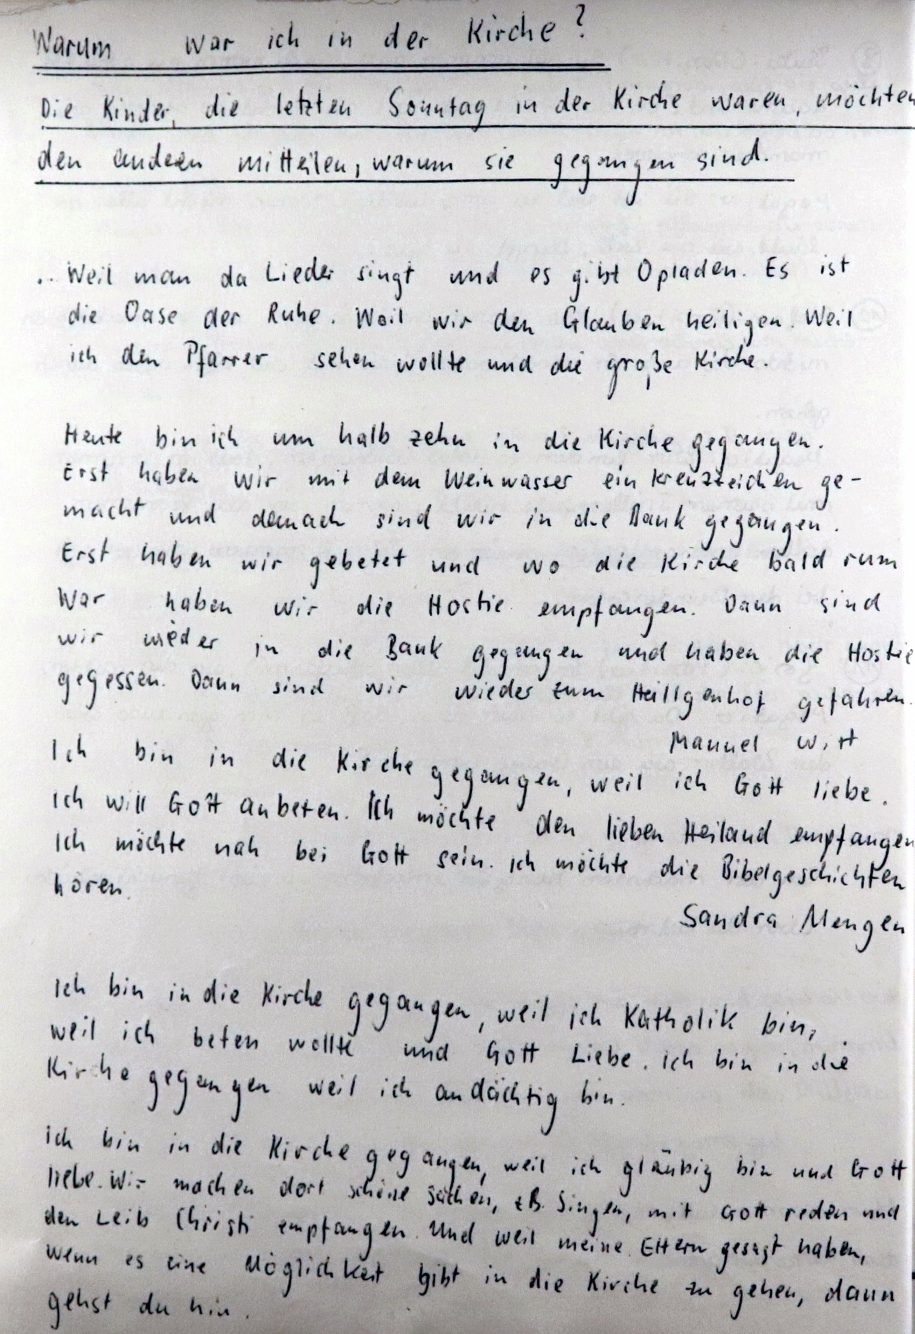 Warum war ich in der Kirche?
Die Kinder, die letzten Sonntag in der Kirche waren, möchten
den anderen mitteilen, warum sie gegangen sind.
... Weil man da Lieder singt und es gibt Opladen. Es ist
die Oase der Ruhe. Weil wir den Glauben heiligen. Weil
ich den Pfarrer sehen wollte und die große Kirche.
Heute bin ich um halb zehn in die Kirche gegangen.
Erst haben wir mit dem Weinwasser ein Kreuzzeichen ge-
macht und demach sind wir in die Bank gegangen.
Erst haben wir gebetet und wo die Kirche bald rum
war haben wir die Hostie empfangen. Dann sind
wir wieder in die Bank gegangen und haben die Hostie
gegessen. Dann sind wir wieder zum Heiligenhof gefahren.
Manuel Wirt
Ich bin in die Kirche gegangen, weil ich Gott liebe.
Ich will Gott anbeten. Ich möchte den lieben Heiland empfangen
Ich möchte nah bei Gott sein. ich möchte die Bibelgeschichten
hören.
Sandra Mengen
Ich bin in die Kirche gegangen, weil ich Katholik bin,
weil ich beten wollte und Gott Liebe. ich bin in die
Kirche gegangen weil ich andächtig bin.
ich bin in die Kirche gegangen, weil ich gläubig bin und Gott
liebe. Wir machen dort schöne Sachen, z.B. Singen, mit Gott reden und
den Leib Christi empfangen. Und weil meine Eltern gesagt haben,
wenn es eine Möglichkeit gibt in die Kirche zu gehen, dann
gehst du hin.